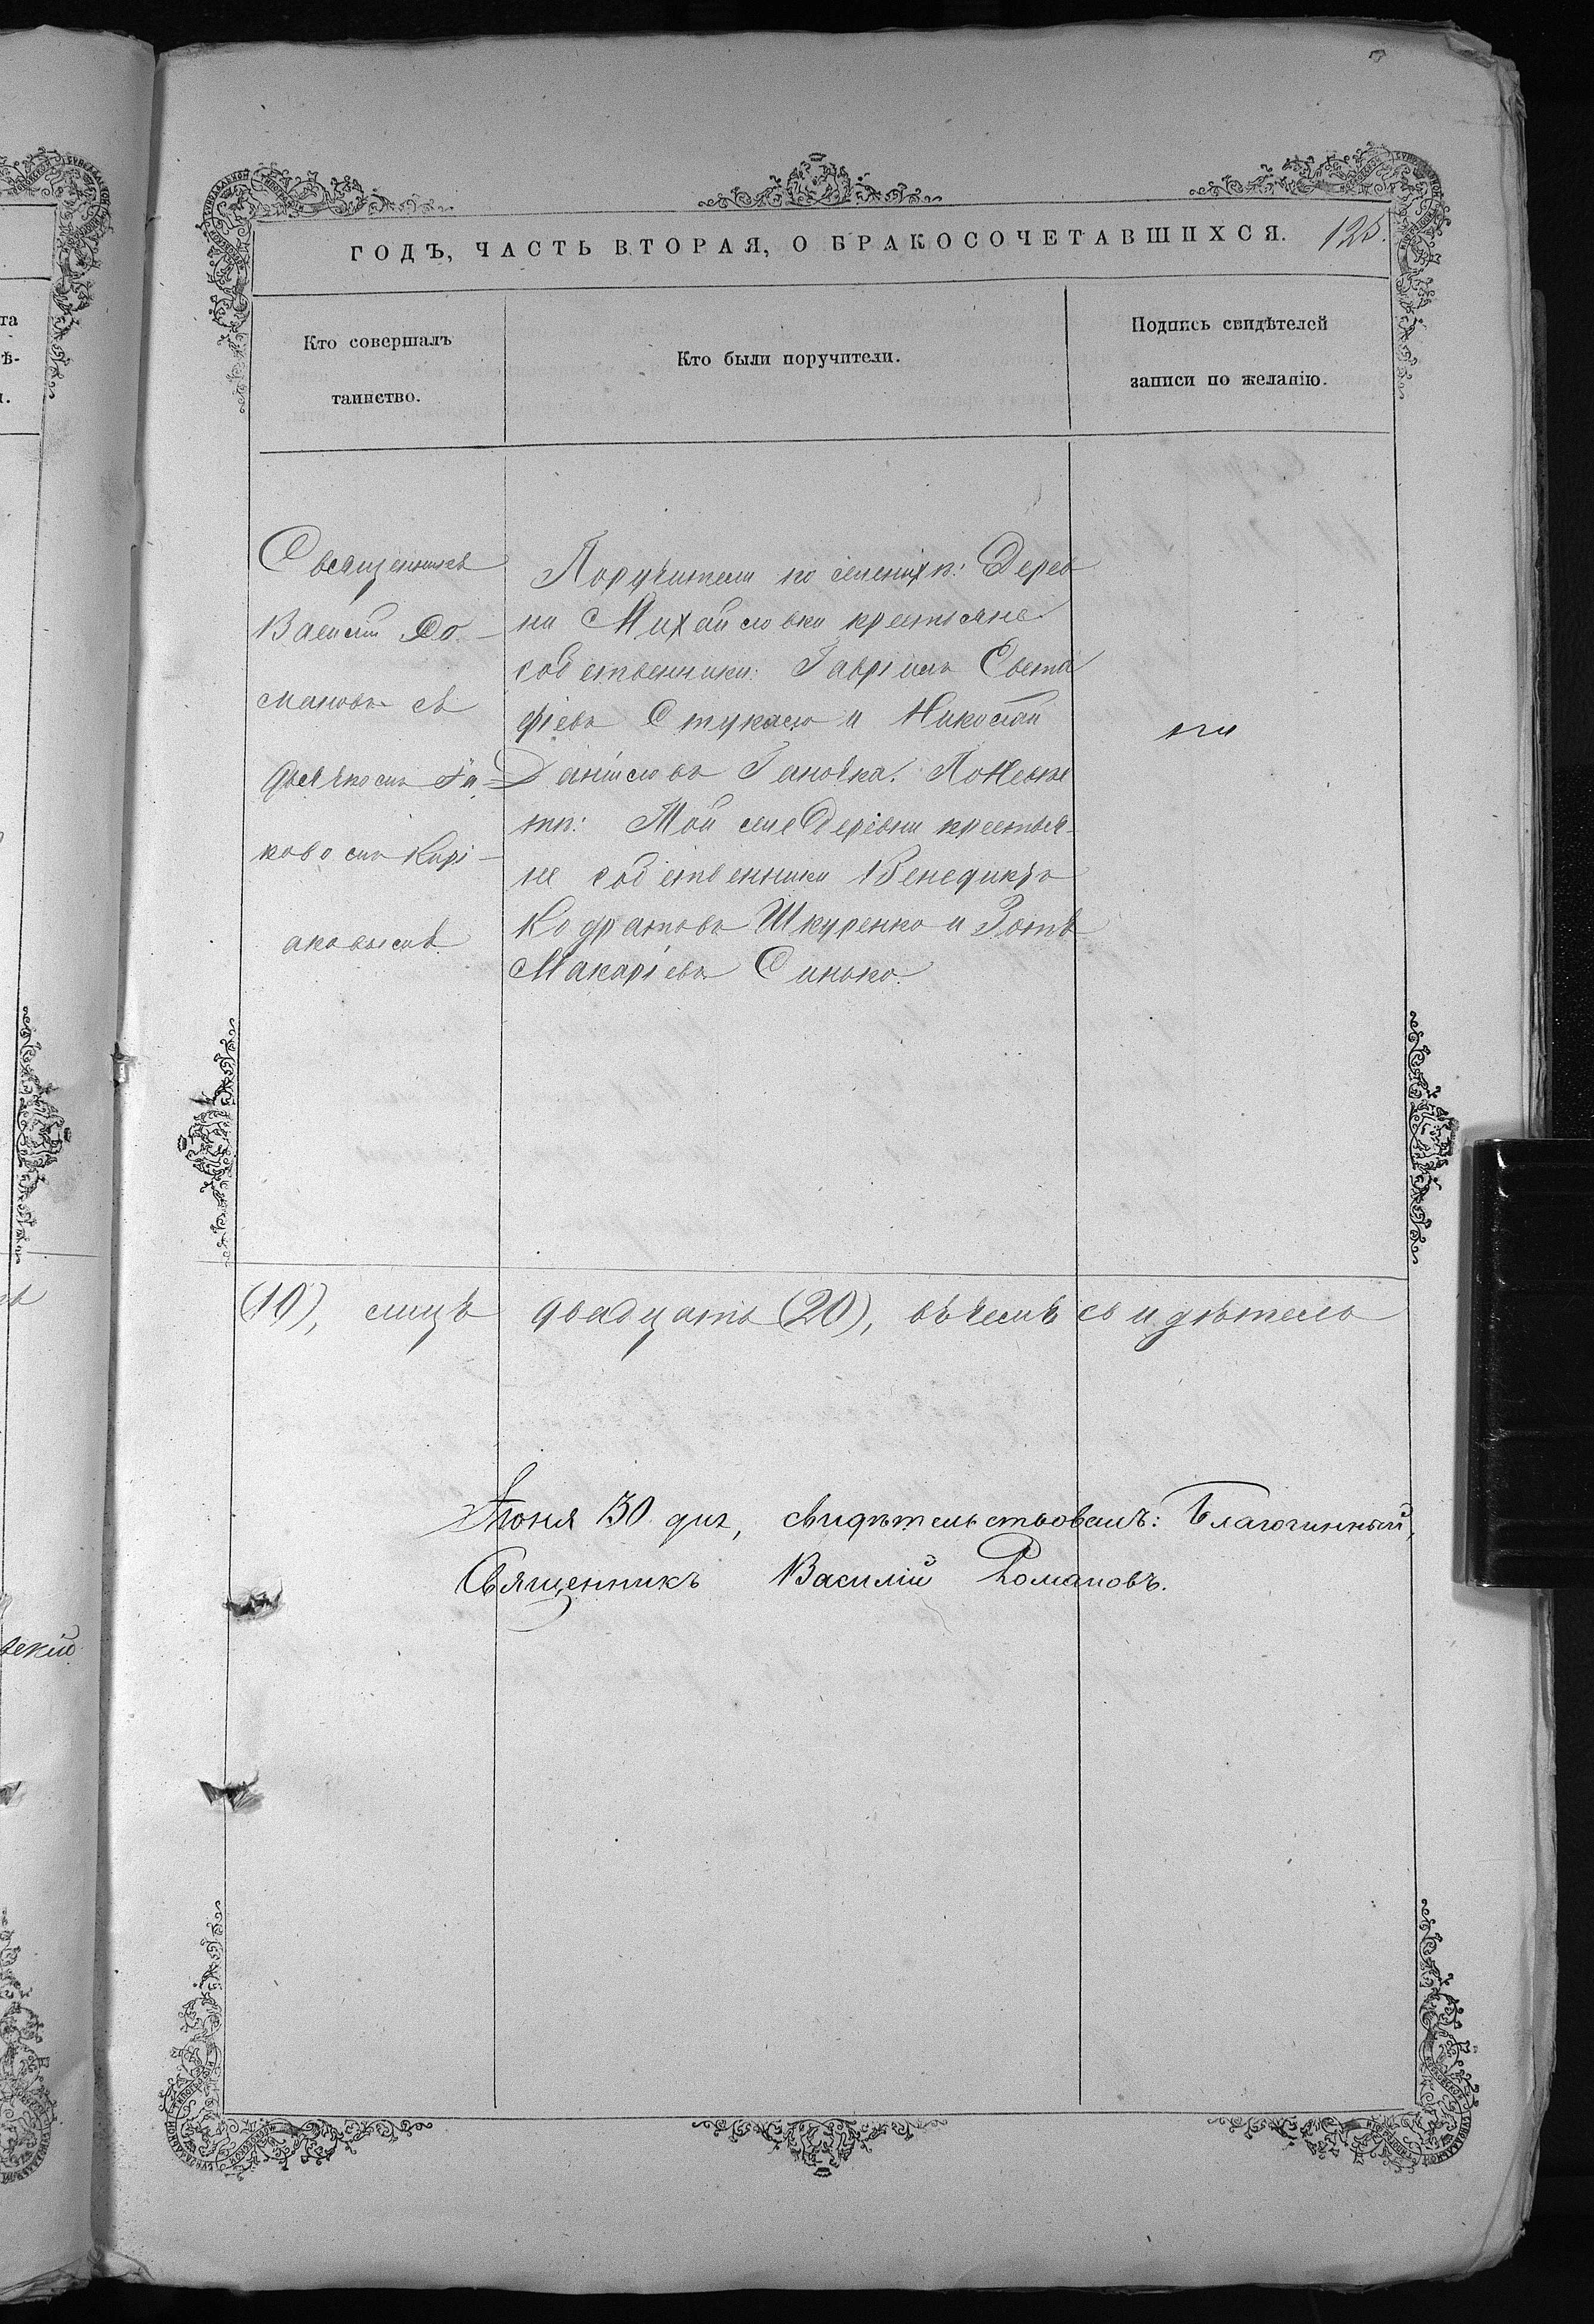 ГОДЪ, ЧАСТЬ ВТОРАЯ, О БРАКОСОЧЕТАВШИХСЯ. 125.
Кто совершалъ
таинство.
Кто были поручители.
Подпись свидѣтелей
записи по желанію.
Священникъ
Василій Ро-
мановъ съ
дьячкомъ Іа-
ковомъ Кирі-
аковымъ.
Поручители по женихѣ: Дерев
ни Михайловки крестьяне
собственники: Гавріилъ Евста
фіевъ Стукало и Николай
Даніиловъ Ганочка. По невѣс
тѣ: Той же деревни крестья-
не собственники Венедиктъ
Кодратовъ Шкуренко и Зотъ
Макаріевъ Синько.
(10), лицъ двадцать (20), въ чемъ свидѣтель
Іюня 30 дня, свидѣтельствовалъ: Благочинный,
Священникъ Василій Романовъ.